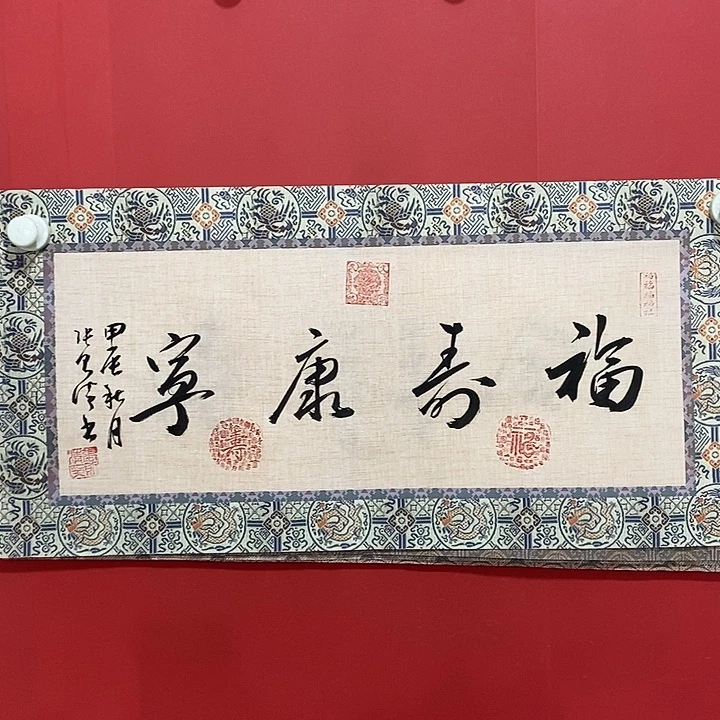 福壽康寧
甲辰秋月
張
書
福
壽